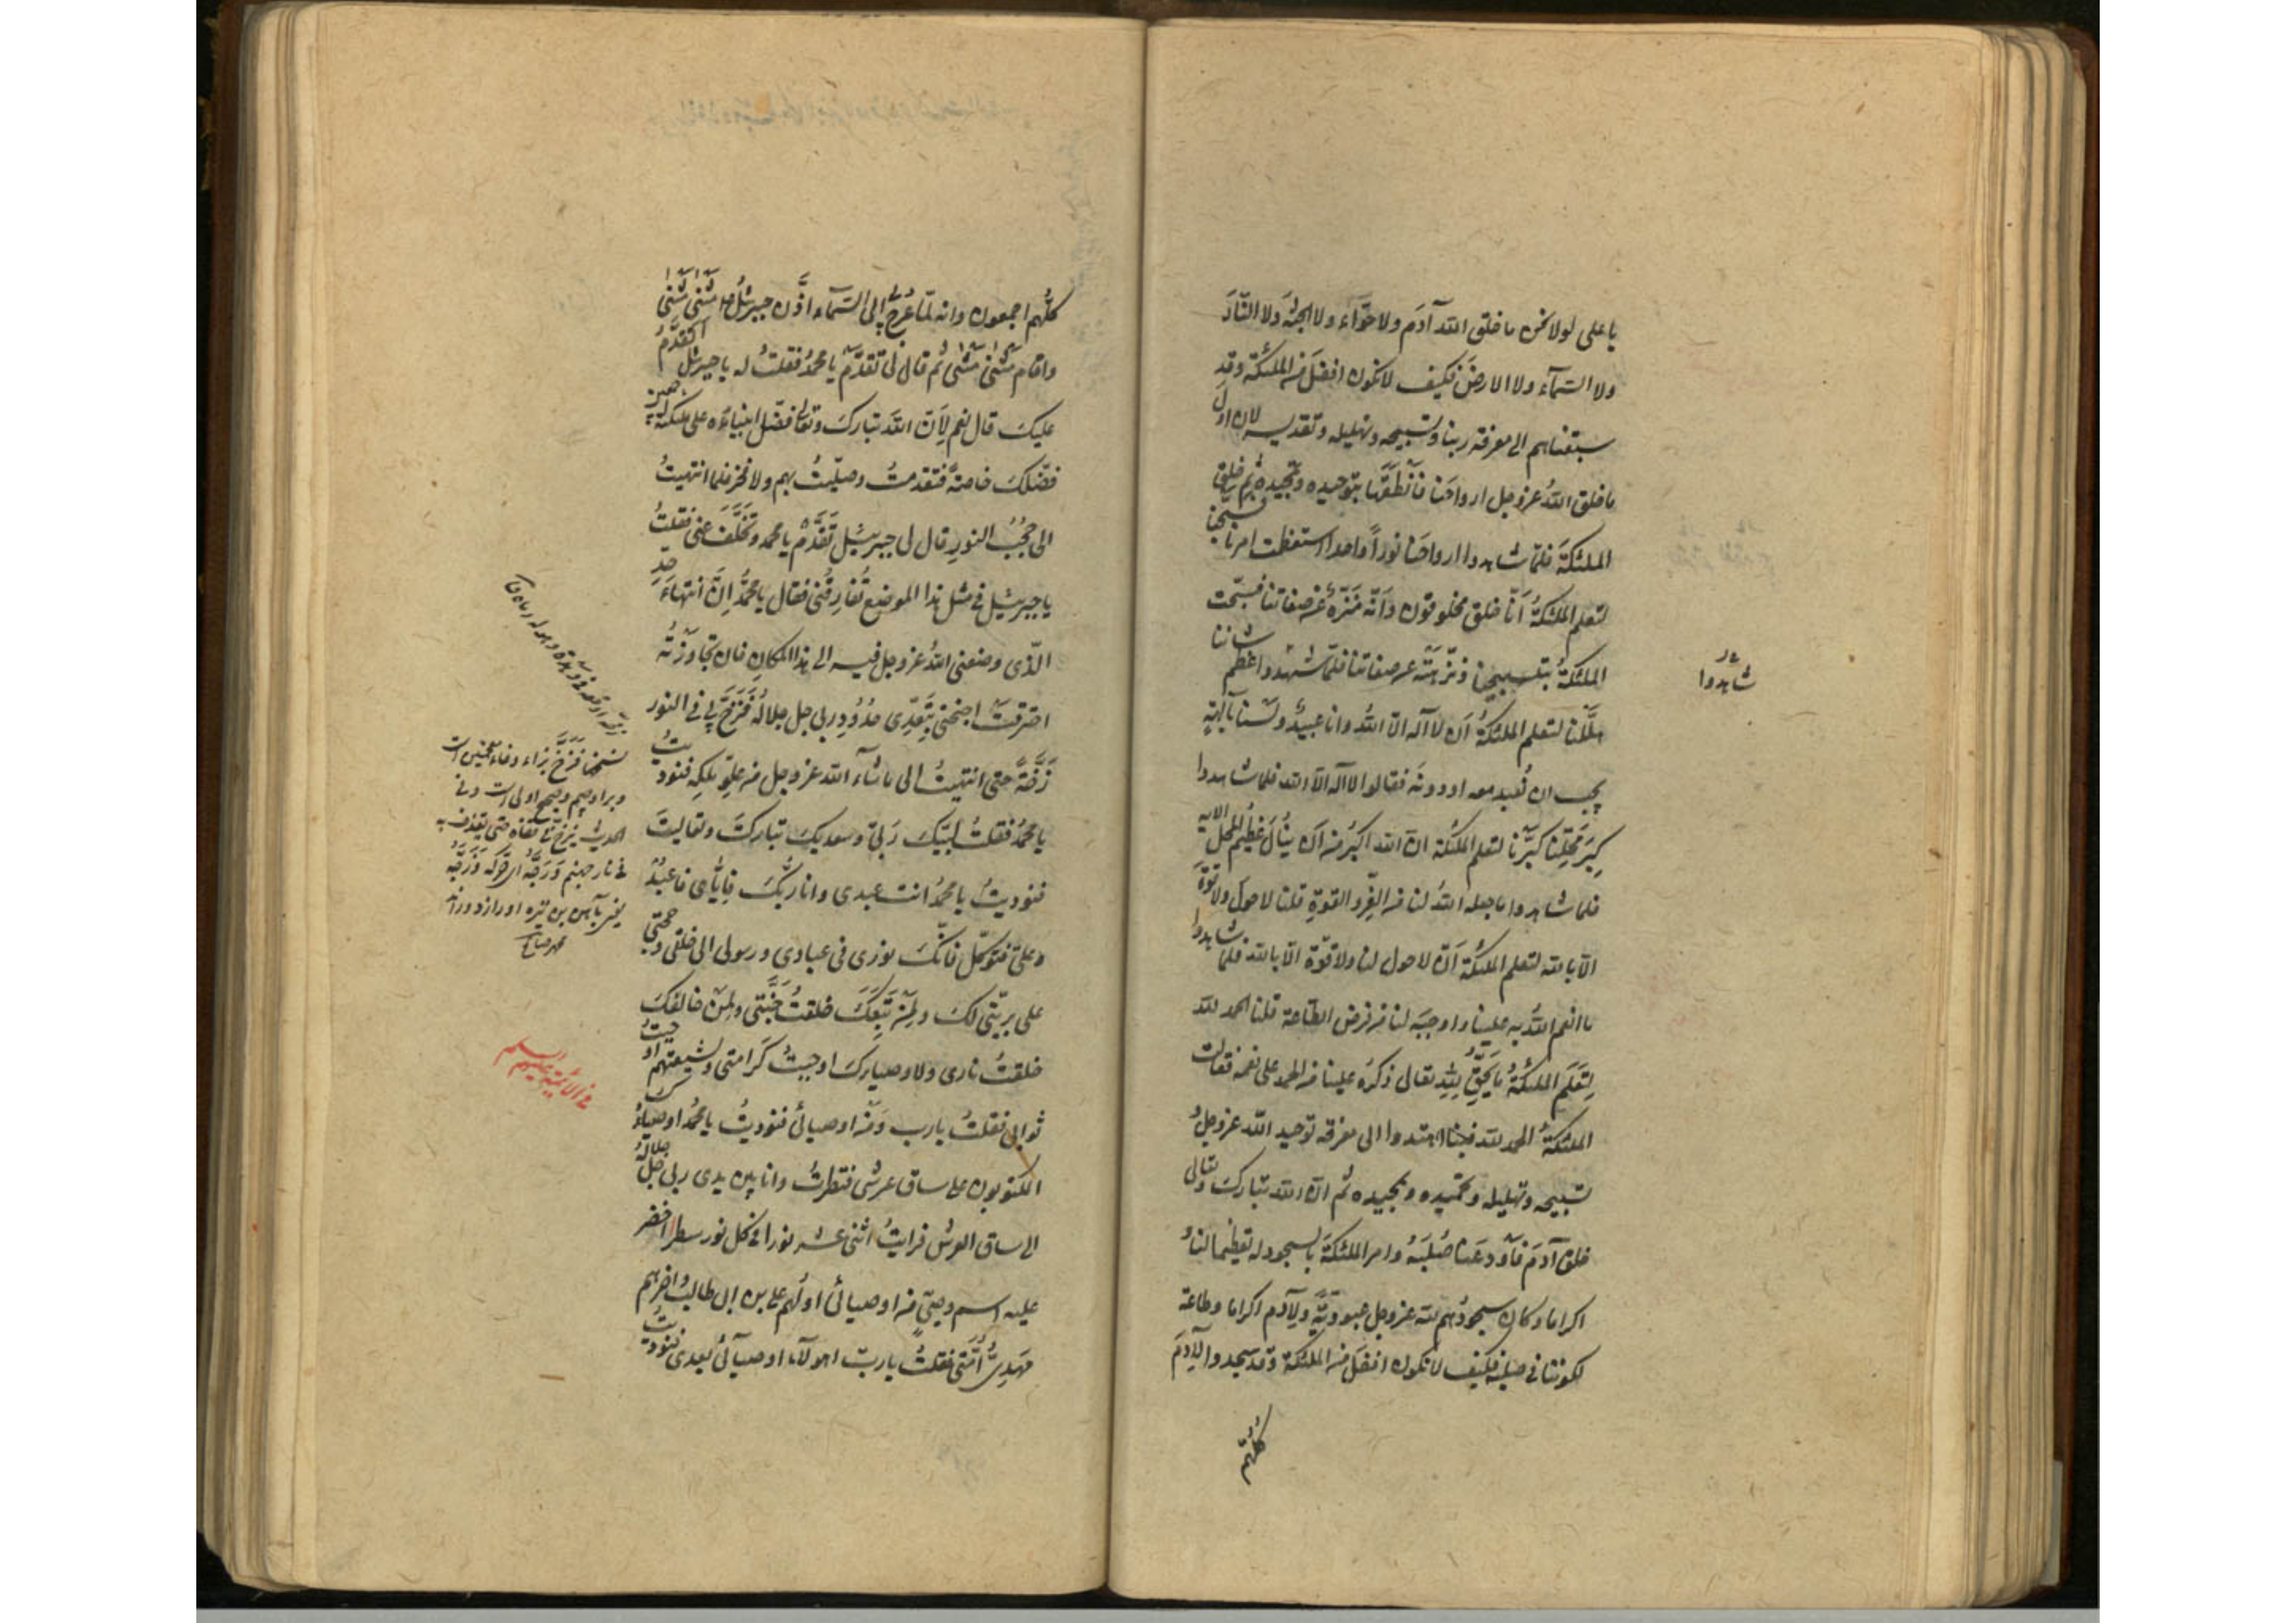 يا على لولا نحن ما خلق الله آدَم ولا حوّاء ولا الجنّة ولا النّارَ
ولا السّمآء ولا الارضَ فكيف لا نكون افضلَ من الملئكة وقد
سبقناهم الى معرفة ربنا وتسبيحه وتهليله وتقديسه لان اول
ما خلق اللهُ عز وجل ارواحَنا فَاَنْطَقَنَا بتوحيده وتمجيده ثم خلق
الملئكةَ فلمّا شاهدوا ارواحَنا نوراً واحدا استعظمت امرنا فسبّحنا
لتعلم الملئكةُ اَنّا خلق مخلوقون وَاَنّه مُنَزّهٌ عن صفاتنا فسبّحت
الملئكةُ بتسبيحنا ونزّهته عن صفاتنا فلمّا شهدوا عظم شاننا
هَلَّلنا لتعلم الملئكةُ اَن لا اله الّا اللهُ وانا عبيدٌ ولسنا بآلهةٍ
يجب ان نُعبد معه او دونَه فقالوا لا اله الّا الله فلما شاهدوا
كِبَر مَحَلِّنا كبّرنا لتعلم الملئكة انّ الله اكبرُ من اَن يُنالَ عَظِيمُ المحل الا به
فلما شاهدوا ما جعله اللهُ لنا من العِزّ والقوّةِ قلنا لا حول ولا قوّة
الّا بالله لتعلم الملئكة اَن لا حول لنا ولا قوّة الّا بالله فلمّا شاهدوا
ما انعم اللهُ به علينا واوجبَه لنا من فرض الطاعة قلنا الحمد لله
لِتَعلَم الملئكةُ ما يَحِقُّ لِلّهِ تعالى ذكرُه علينا من الحمد على نعمه فقالت
الملئكةُ الحمد لله فبنا اهتدوا الى معرفة توحيد الله عز وجلّ و
تسبيحه وتهليله وتحميده وتمجيده ثم انّ الله تبارك وتعالى
خلق آدَمَ فَاَودعَنا صُلبَهُ وامر الملئكةَ بالسجود له تعظيما لنا و
اكراما وكان سجودُهم لله عز وجل عبوديّةً ولِآدم اكراما وطاعة
لكوننا فى صلبه فكيف لا نكون افضلَ من الملئكة وقد سجدوا لِآدَمَ
كلّهم
شاهدوا
كلُّهم اجمعون وانه لمّا عُرِجَ بى الى السّمآء اَذَّن جبرئيلُ مَثْنى مَثْنى
واقام مَثْنى مَثْنى ثم قال لى تقدّم يا محمدُ فقلتُ له يا جبرئيل اَتَقدَّمُ
عليكَ قال نعم لِاَنّ اللهَ تبارك وتعالى فضّل انبياءَه على ملئكته اجمعين
فضّلكَ خاصةً فتقدمتُ وصلّيتُ بهم ولا فخر فلما انتهيتُ
الى حُجُبِ النور قال لى جبرئيل تَقَدَّمْ يا محمد وتَخَلَّفَ عنى فقلتُ
يا جبرئيل فى مثل هذا الموضع تُفارِقُنى فقال يا محمّدُ اِنّ انتهاءَ حدِّى
الّذى وضعنى اللهُ عز وجل فيه الى هذا المكانِ فان تجاوَزْتُه
احترقت اجنحتى بِتَعَدِّى حُدُودِ ربى جل جلالُه فَزَخَّ بى فى النور
زَخَّةً حتى انتهيتُ الى ما شآء الله عز وجل من علوِّ مُلكِه فنوديتُ
يا محمدُ فقلتُ لبّيكَ رَبّى وسعديكَ تباركتَ وتعاليتَ
فنوديتُ يا محمدُ انت عبدى وانا ربُّكَ فاِيّاىَ فاعبُدْ
وعلىَّ فتوكّل فانّكَ نورى فى عبادى ورسولى الى خلقى وحجّتى
على بريّتى لكَ ولِمَن تَبِعَكَ خلقتُ جَنَّتى ولِمَن خالفكَ
خلقتُ نارى ولاوصيائِكَ اوجبتُ كَرامتى ولشيعتهم اوجبتُ
ثوابى فقلتُ يا رب ومَن اوصيائى فنوديتُ يا محمدُ اوصياؤكَ
المكتوبون على ساق عرشى فنظرتُ وانا بين يدى ربى جلّ جلاله
الى ساق العرش فرايتُ اثنى عشر نورا فى كل نور سطرا اخضر
عليه اسم وصىٍّ من اوصيائى اوّلُهم على بن ابى طالب واخرهم
مَهدِىُّ اُمّتى فقلتُ يا ربّ اهولآء اوصيآئى بعدى فنوديتُ